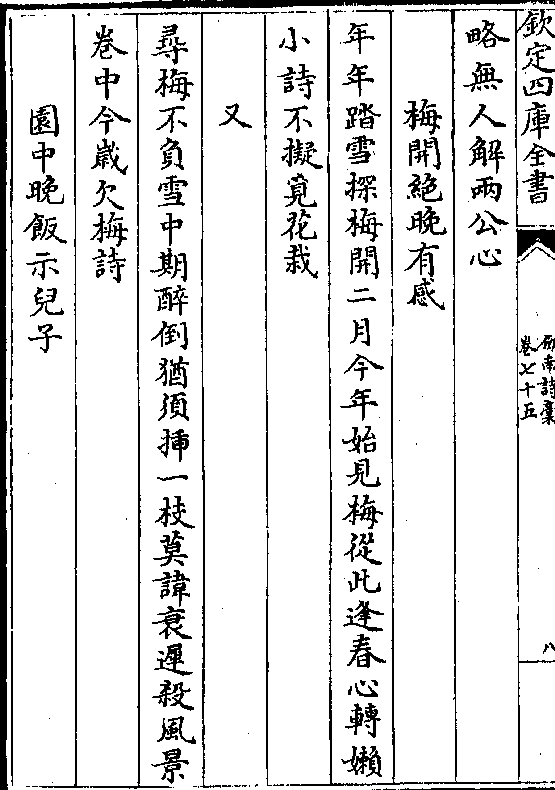 欽定四庫全書
劍南詩稾
卷七十五
八
略無人解兩公心
梅開絕晚有感
年年踏雪探梅開二月今年始見梅從此逢春心轉嬾
小詩不擬覓花栽
又
尋梅不負雪中期醉倒猶須揷一枝莫諱衰遲殺風景
卷中今歲欠梅詩
園中晚飯示兒子